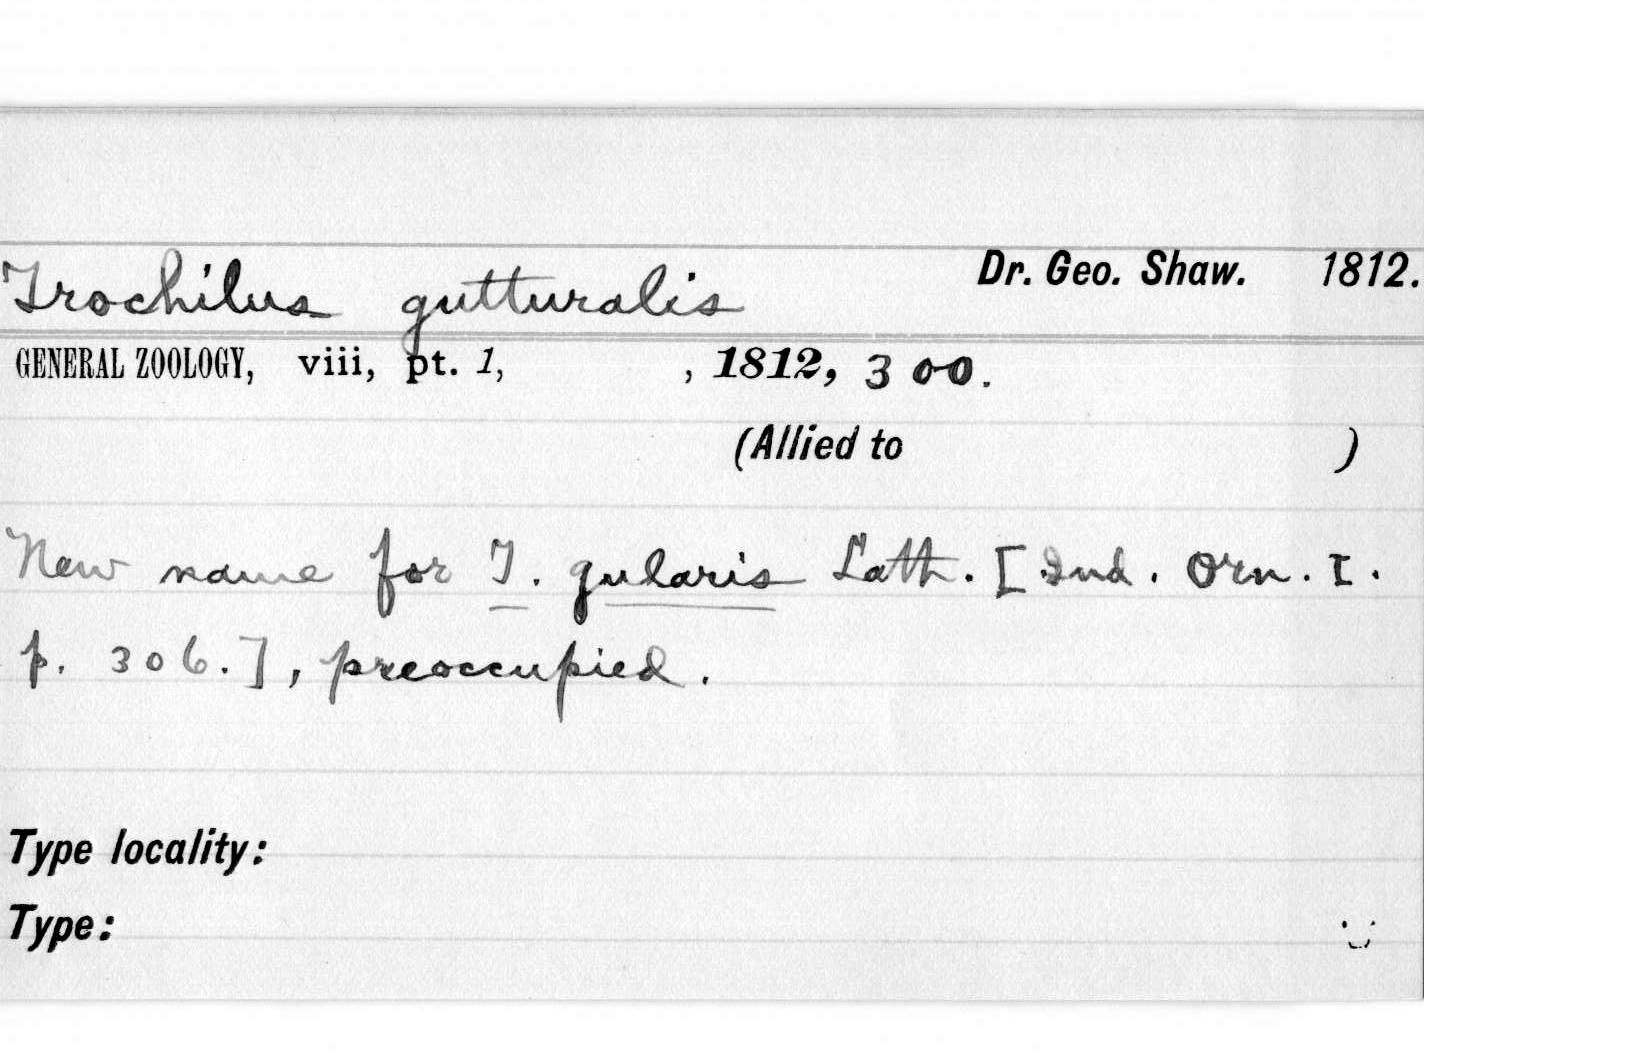 Trochilus gutturalis Dr. Geo. Shaw. 1812.
GENERAL ZOOLOGY, viii, pt. 1, , 1812, 300.
(Allied to )
New name for T. gularis Lath. [Ind. Orn. I.
p. 306.], preoccupied.
Type locality:
Type: